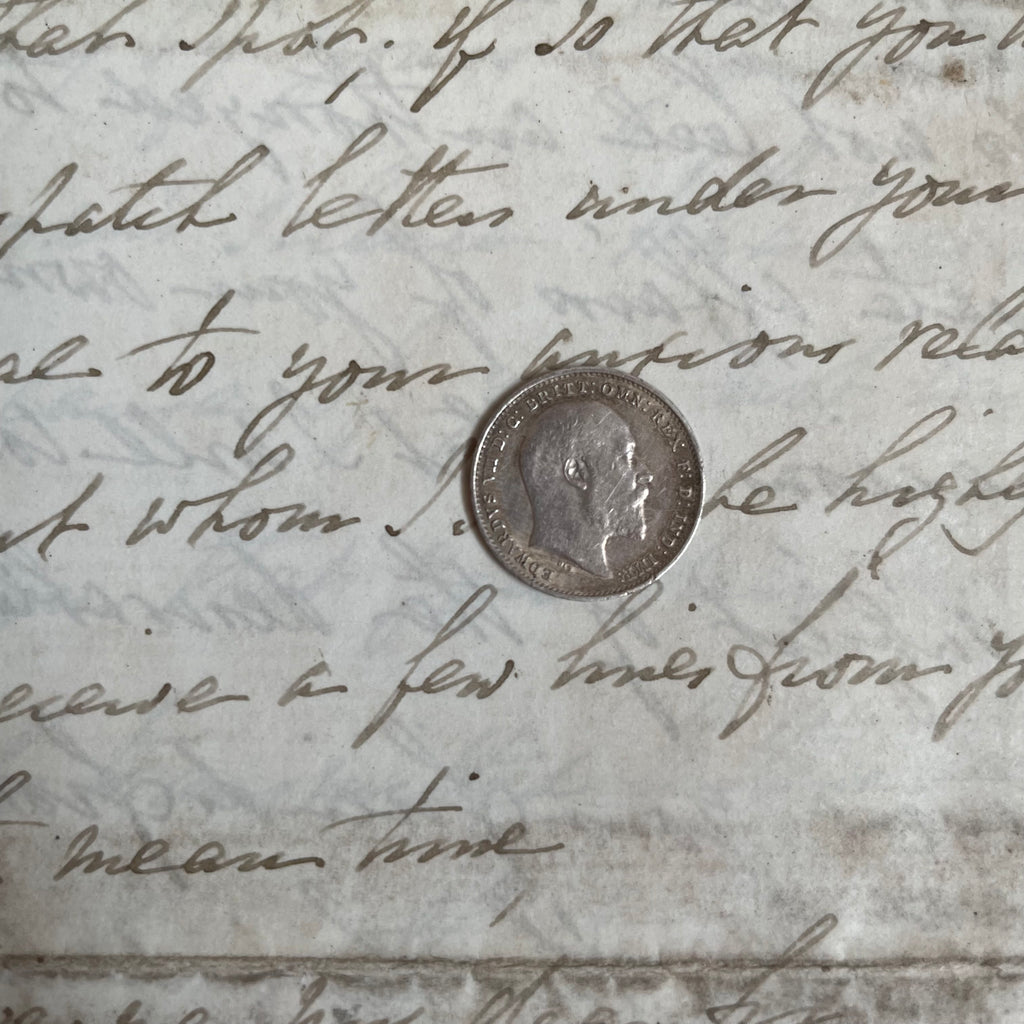 that spot. if so that you
spatch letters under your
to your anxious rela
t whom I he highl
eceive a few lines from yo
mean time
EDWARDVS VII D: G: BRITT: OMN: REX F: D: IND: IMP: